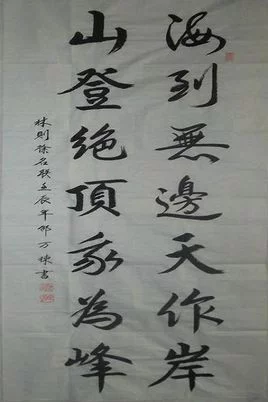 海到無邊天作岸
山登绝頂我為峰
林則徐名联壬辰年邵万棟書